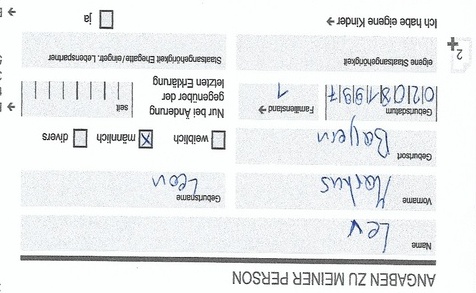 ANGABEN ZU MEINER PERSON
Name
Lev
Vorname Geburtsname
Markus Leon
Geburtsort
Bayern
weiblich männlich divers
Geburtsdatum Familienstand →
02081997 1
Nur bei Änderung
gegenüber der
letzten Erklärung
seit
eigene Staatsangehörigkeit
Staatsangehörigkeit Ehegatte /eingetr. Lebenspartner
2
Ich habe eigene Kinder → ja